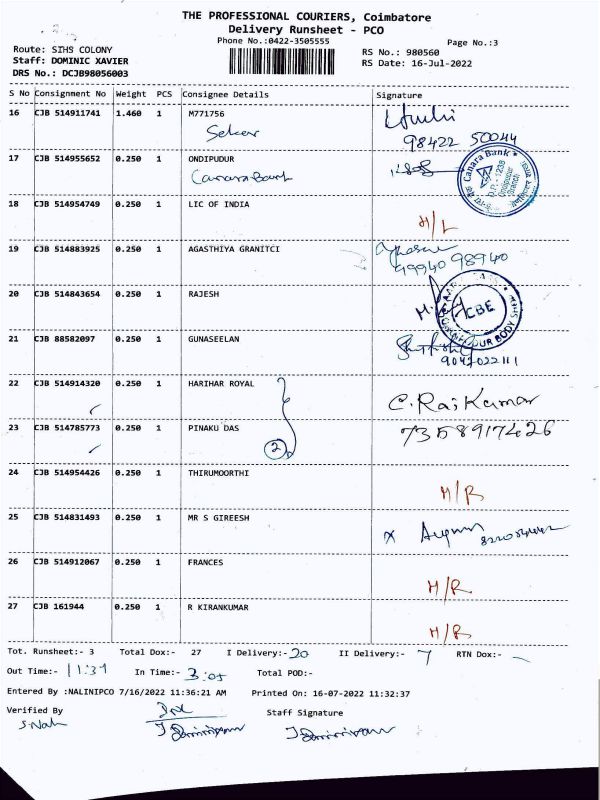 THE PROFESSIONAL COURIERS, Coimbatore
Delivery Runsheet - PCO
Phone No.:0422-3505555
Page No.:3
Route: SIHS COLONY
Staff: DOMINIC XAVIER
DRS No.: DCJB98056003
RS No.: 980560
RS Date: 16-Jul-2022
S No Consignment No Weight PCS Consignee Details Signature
16 CJB 514911741 1.460 1 M771756
Sekar
98422 50044
17 CJB 514955652 0.250 1 ONDIPUDUR
Canara Bank
Canara Bank
D.P.-1238
18 CJB 514954749 0.250 1 LIC OF INDIA
M/L
19 CJB 514883925 0.250 1 AGASTHIYA GRANITCI
99940 98940
20 CJB 514843654 0.250 1 RAJESH
CBE
21 CJB 88582097 0.250 1 GUNASEELAN
9047022111
22 CJB 514914320 0.250 1 HARIHAR ROYAL
C. Raj Kumar
23 CJB 514785773 0.250 1 PINAKU DAS
7358917426
2
24 CJB 514954426 0.250 1 THIRUMOORTHI
M/R
25 CJB 514831493 0.250 1 MR S GIREESH
X
26 CJB 514912067 0.250 1 FRANCES
M/R
27 CJB 161944 0.250 1 R KIRANKUMAR
M/R
Tot. Runsheet:- 3 Total Dox:- 27 I Delivery:- 20 II Delivery:- 7 RTN Dox:-
Out Time:- 11:39 In Time:- 3:05 Total POD:-
Entered By :NALINIPCO 7/16/2022 11:36:21 AM Printed On: 16-07-2022 11:32:37
Verified By Staff Signature